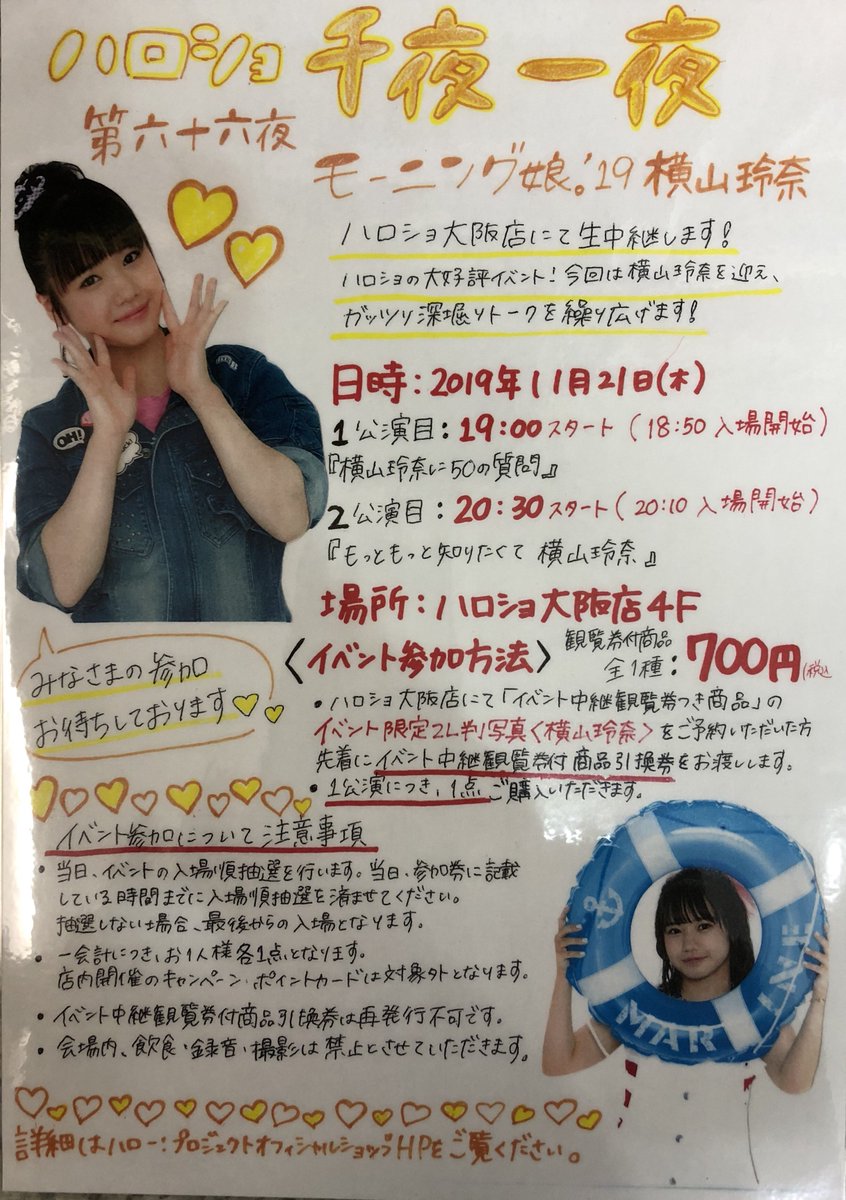 ハロショ 千夜一夜
第六十六夜
モーニング娘。'19 横山玲奈
ハロショ大阪店にて生中継します!
ハロショの大好評イベント!今回は横山玲奈を迎え、
ガッツリ深堀りトークを繰り広げます!
日時:2019年11月21日(木)
1公演目:19:00スタート(18:50入場開始)
『横山玲奈に50の質問』
2公演目:20:30スタート(20:10入場開始)
『もっともっと知りたくて 横山玲奈』
場所:ハロショ大阪店4F
〈イベント参加方法〉
観覧券付商品
全1種:700円(税込
・ハロショ大阪店にて「イベント中継観覧券つき商品」の
イベント限定2L判写真〈横山玲奈〉をご予約いただいた方
先着にイベント中継観覧券付商品引換券をお渡しします。
・1公演につき、1点ご購入いただきます。
みなさまの参加
お待ちしております
イベント参加について注意事項
・当日、イベントの入場順抽選を行います。当日、参加券に記載
している時間までに入場順抽選を済ませてください。
抽選しない場合、最後からの入場となります。
・一会計につき、お1人様各1点となります。
店内開催のキャンペーン・ポイントカードは対象外となります。
・イベント中継観覧券付商品引換券は再発行不可です。
・会場内、飲食・録音・撮影は禁止とさせていただきます。
詳細はハロー!プロジェクトオフィシャルショップHPをご覧ください。
OH!
MAR
INE